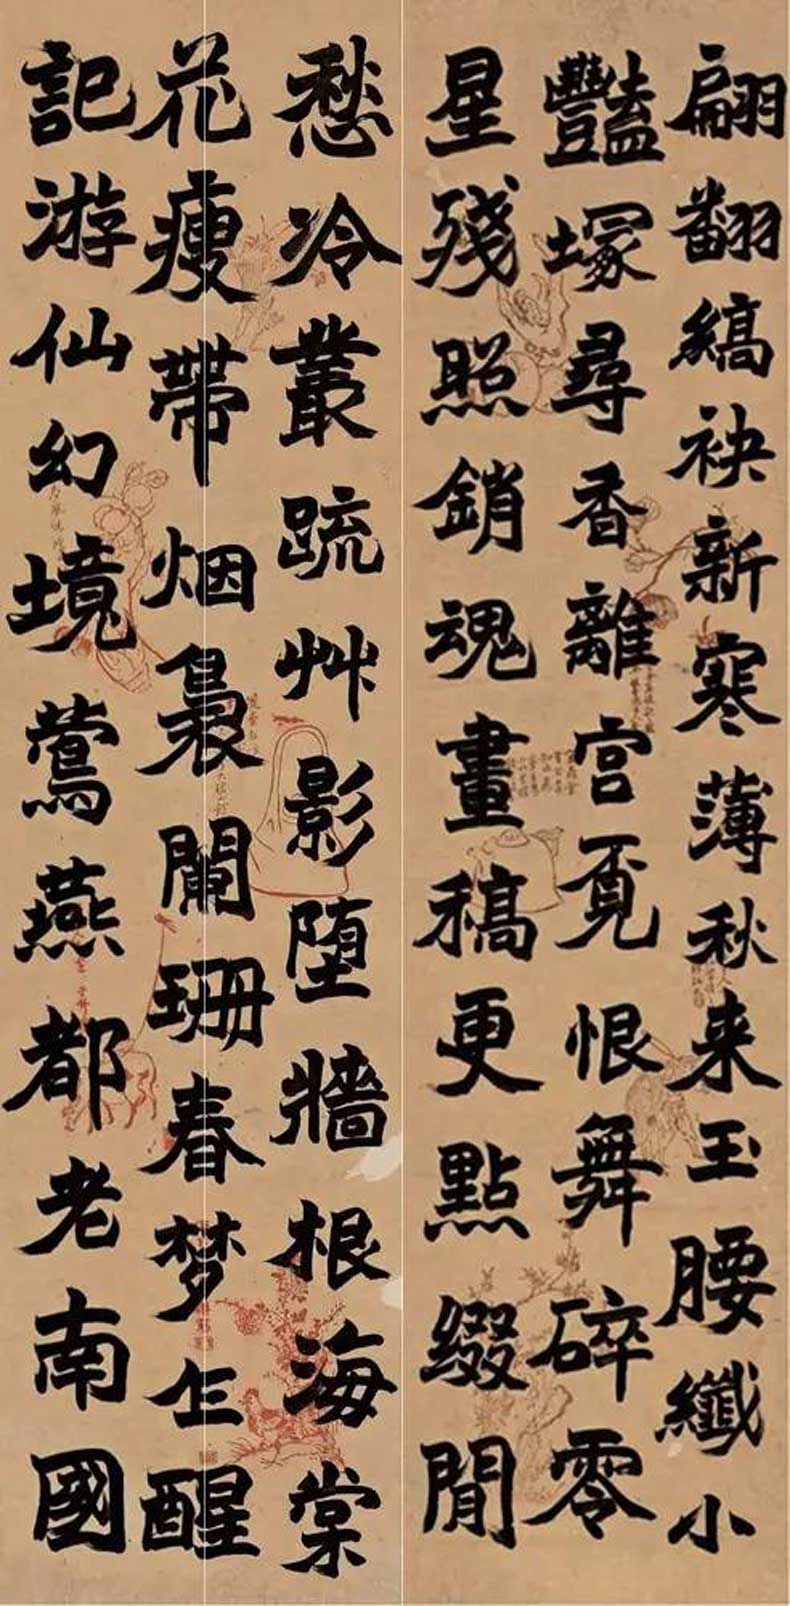 翩翻縞袂新寒薄秋来玉腰纖小
豔塚尋香離宫覔恨舞碎零
星殘照銷魂畫稿更點綴閒
愁冷叢疏艸影堕牆根海棠
花瘦帶烟裊闌珊春梦乍醒
記游仙幻境鶯燕都老南國